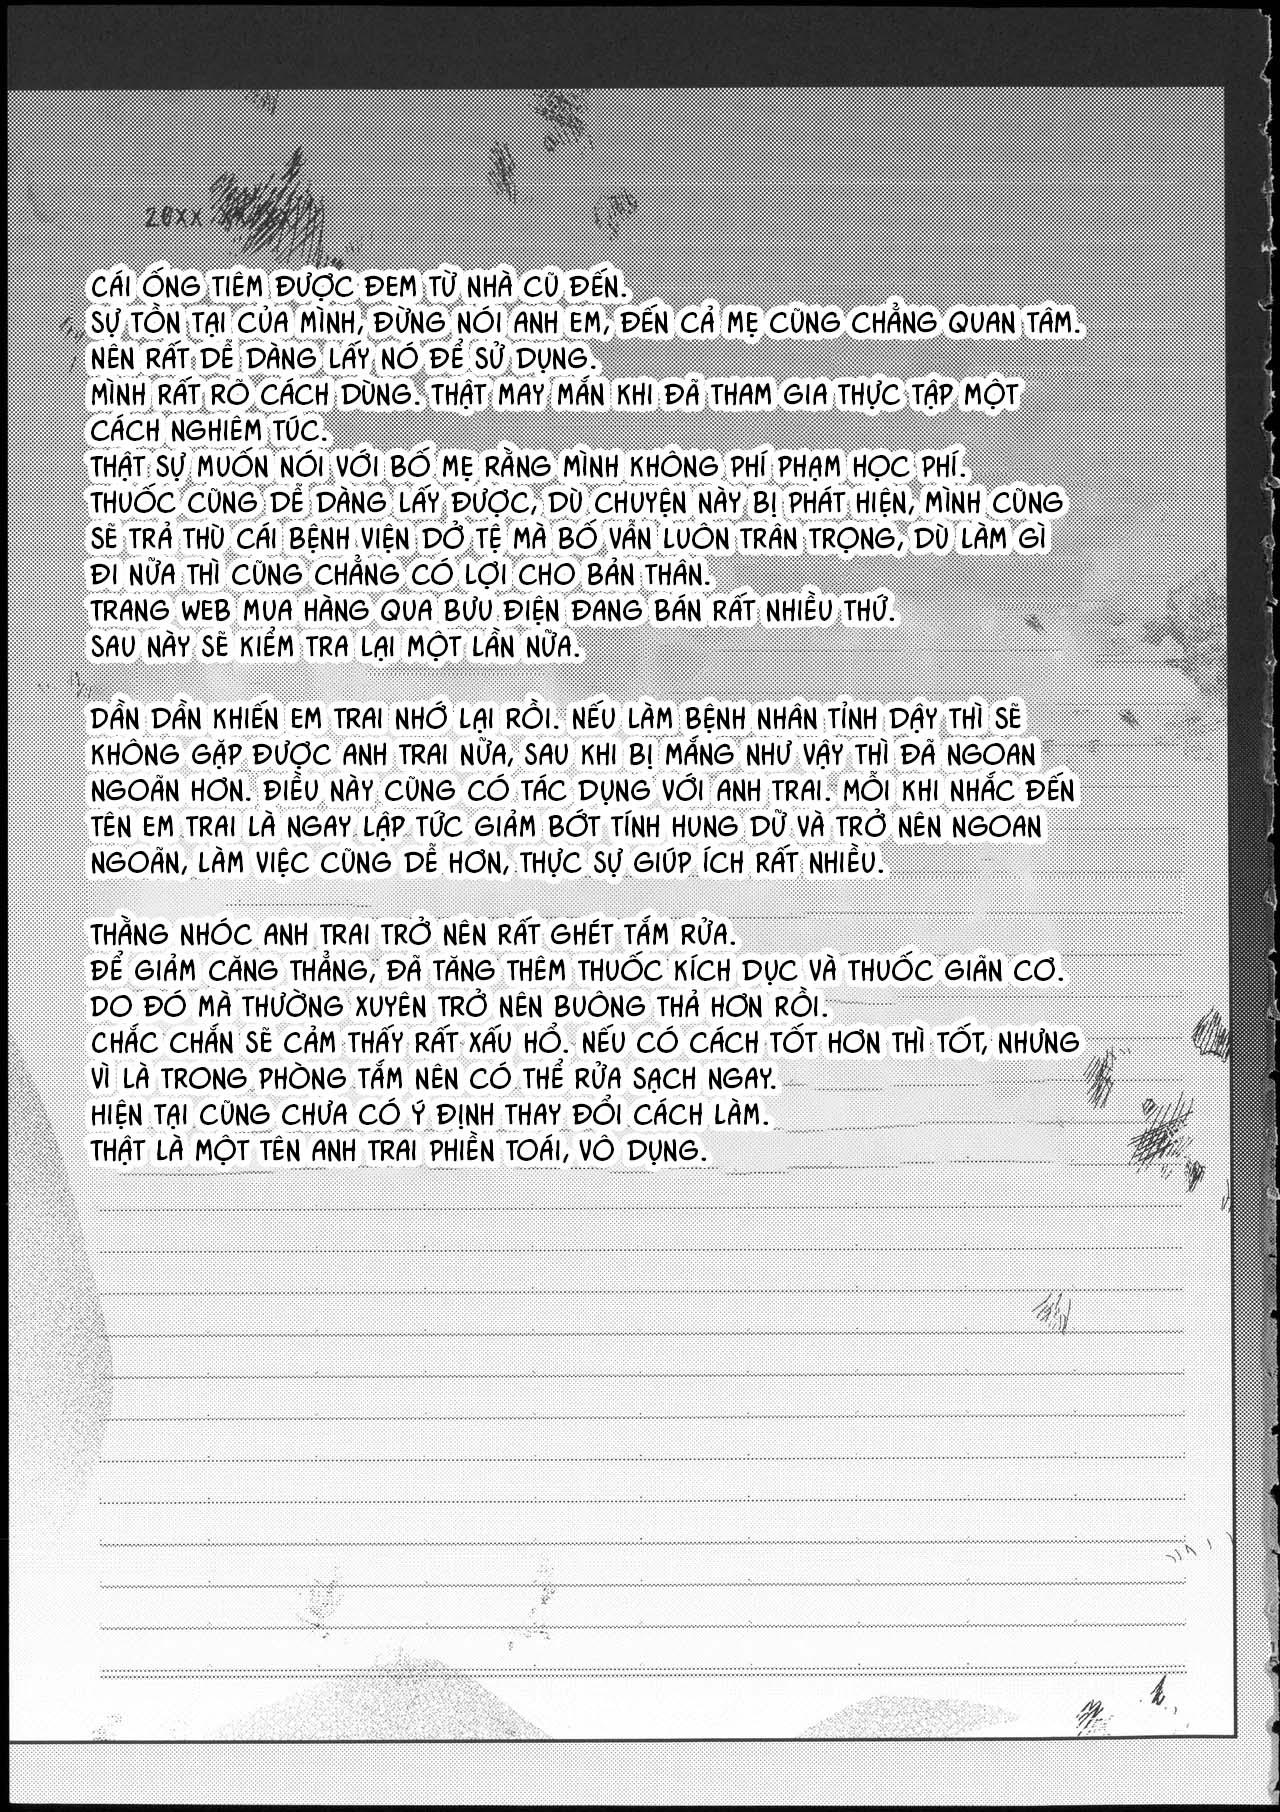 20XX
CÁI ỐNG TIÊM ĐƯỢC ĐEM TỪ NHÀ CŨ ĐẾN.
SỰ TỒN TẠI CỦA MÌNH, ĐỪNG NÓI ANH EM, ĐẾN CẢ MẸ CŨNG CHẲNG QUAN TÂM.
NÊN RẤT DỄ DÀNG LẤY NÓ ĐỂ SỬ DỤNG.
MÌNH RẤT RÕ CÁCH DÙNG. THẬT MAY MẮN KHI ĐÃ THAM GIA THỰC TẬP MỘT
CÁCH NGHIÊM TÚC.
THẬT SỰ MUỐN NÓI VỚI BỐ MẸ RẰNG MÌNH KHÔNG PHÍ PHẠM HỌC PHÍ.
THUỐC CŨNG DỄ DÀNG LẤY ĐƯỢC, DÙ CHUYỆN NÀY BỊ PHÁT HIỆN, MÌNH CŨNG
SẼ TRẢ THÙ CÁI BỆNH VIỆN DỞ TỆ MÀ BỐ VẪN LUÔN TRÂN TRỌNG, DÙ LÀM GÌ
ĐI NỮA THÌ CŨNG CHẲNG CÓ LỢI CHO BẢN THÂN.
TRANG WEB MUA HÀNG QUA BƯU ĐIỆN ĐANG BÁN RẤT NHIỀU THỨ.
SAU NÀY SẼ KIỂM TRA LẠI MỘT LẦN NỮA.
DẦN DẦN KHIẾN EM TRAI NHỚ LẠI RỒI. NẾU LÀM BỆNH NHÂN TỈNH DẬY THÌ SẼ
KHÔNG GẶP ĐƯỢC ANH TRAI NỮA, SAU KHI BỊ MẮNG NHƯ VẬY THÌ ĐÃ NGOAN
NGOÃN HƠN. ĐIỀU NÀY CŨNG CÓ TÁC DỤNG VỚI ANH TRAI. MỖI KHI NHẮC ĐẾN
TÊN EM TRAI LÀ NGAY LẬP TỨC GIẢM BỚT TÍNH HUNG DỮ VÀ TRỞ NÊN NGOAN
NGOÃN, LÀM VIỆC CŨNG DỄ HƠN, THỰC SỰ GIÚP ÍCH RẤT NHIỀU.
THẰNG NHÓC ANH TRAI TRỞ NÊN RẤT GHÉT TẮM RỬA.
ĐỂ GIẢM CĂNG THẲNG, ĐÃ TĂNG THÊM THUỐC KÍCH DỤC VÀ THUỐC GIÃN CƠ.
DO ĐÓ MÀ THƯỜNG XUYÊN TRỞ NÊN BUÔNG THẢ HƠN RỒI.
CHẮC CHẮN SẼ CẢM THẤY RẤT XẤU HỔ. NẾU CÓ CÁCH TỐT HƠN THÌ TỐT, NHƯNG
VÌ LÀ TRONG PHÒNG TẮM NÊN CÓ THỂ RỬA SẠCH NGAY.
HIỆN TẠI CŨNG CHƯA CÓ Ý ĐỊNH THAY ĐỔI CÁCH LÀM.
THẬT LÀ MỘT TÊN ANH TRAI PHIỀN TOÁI, VÔ DỤNG.